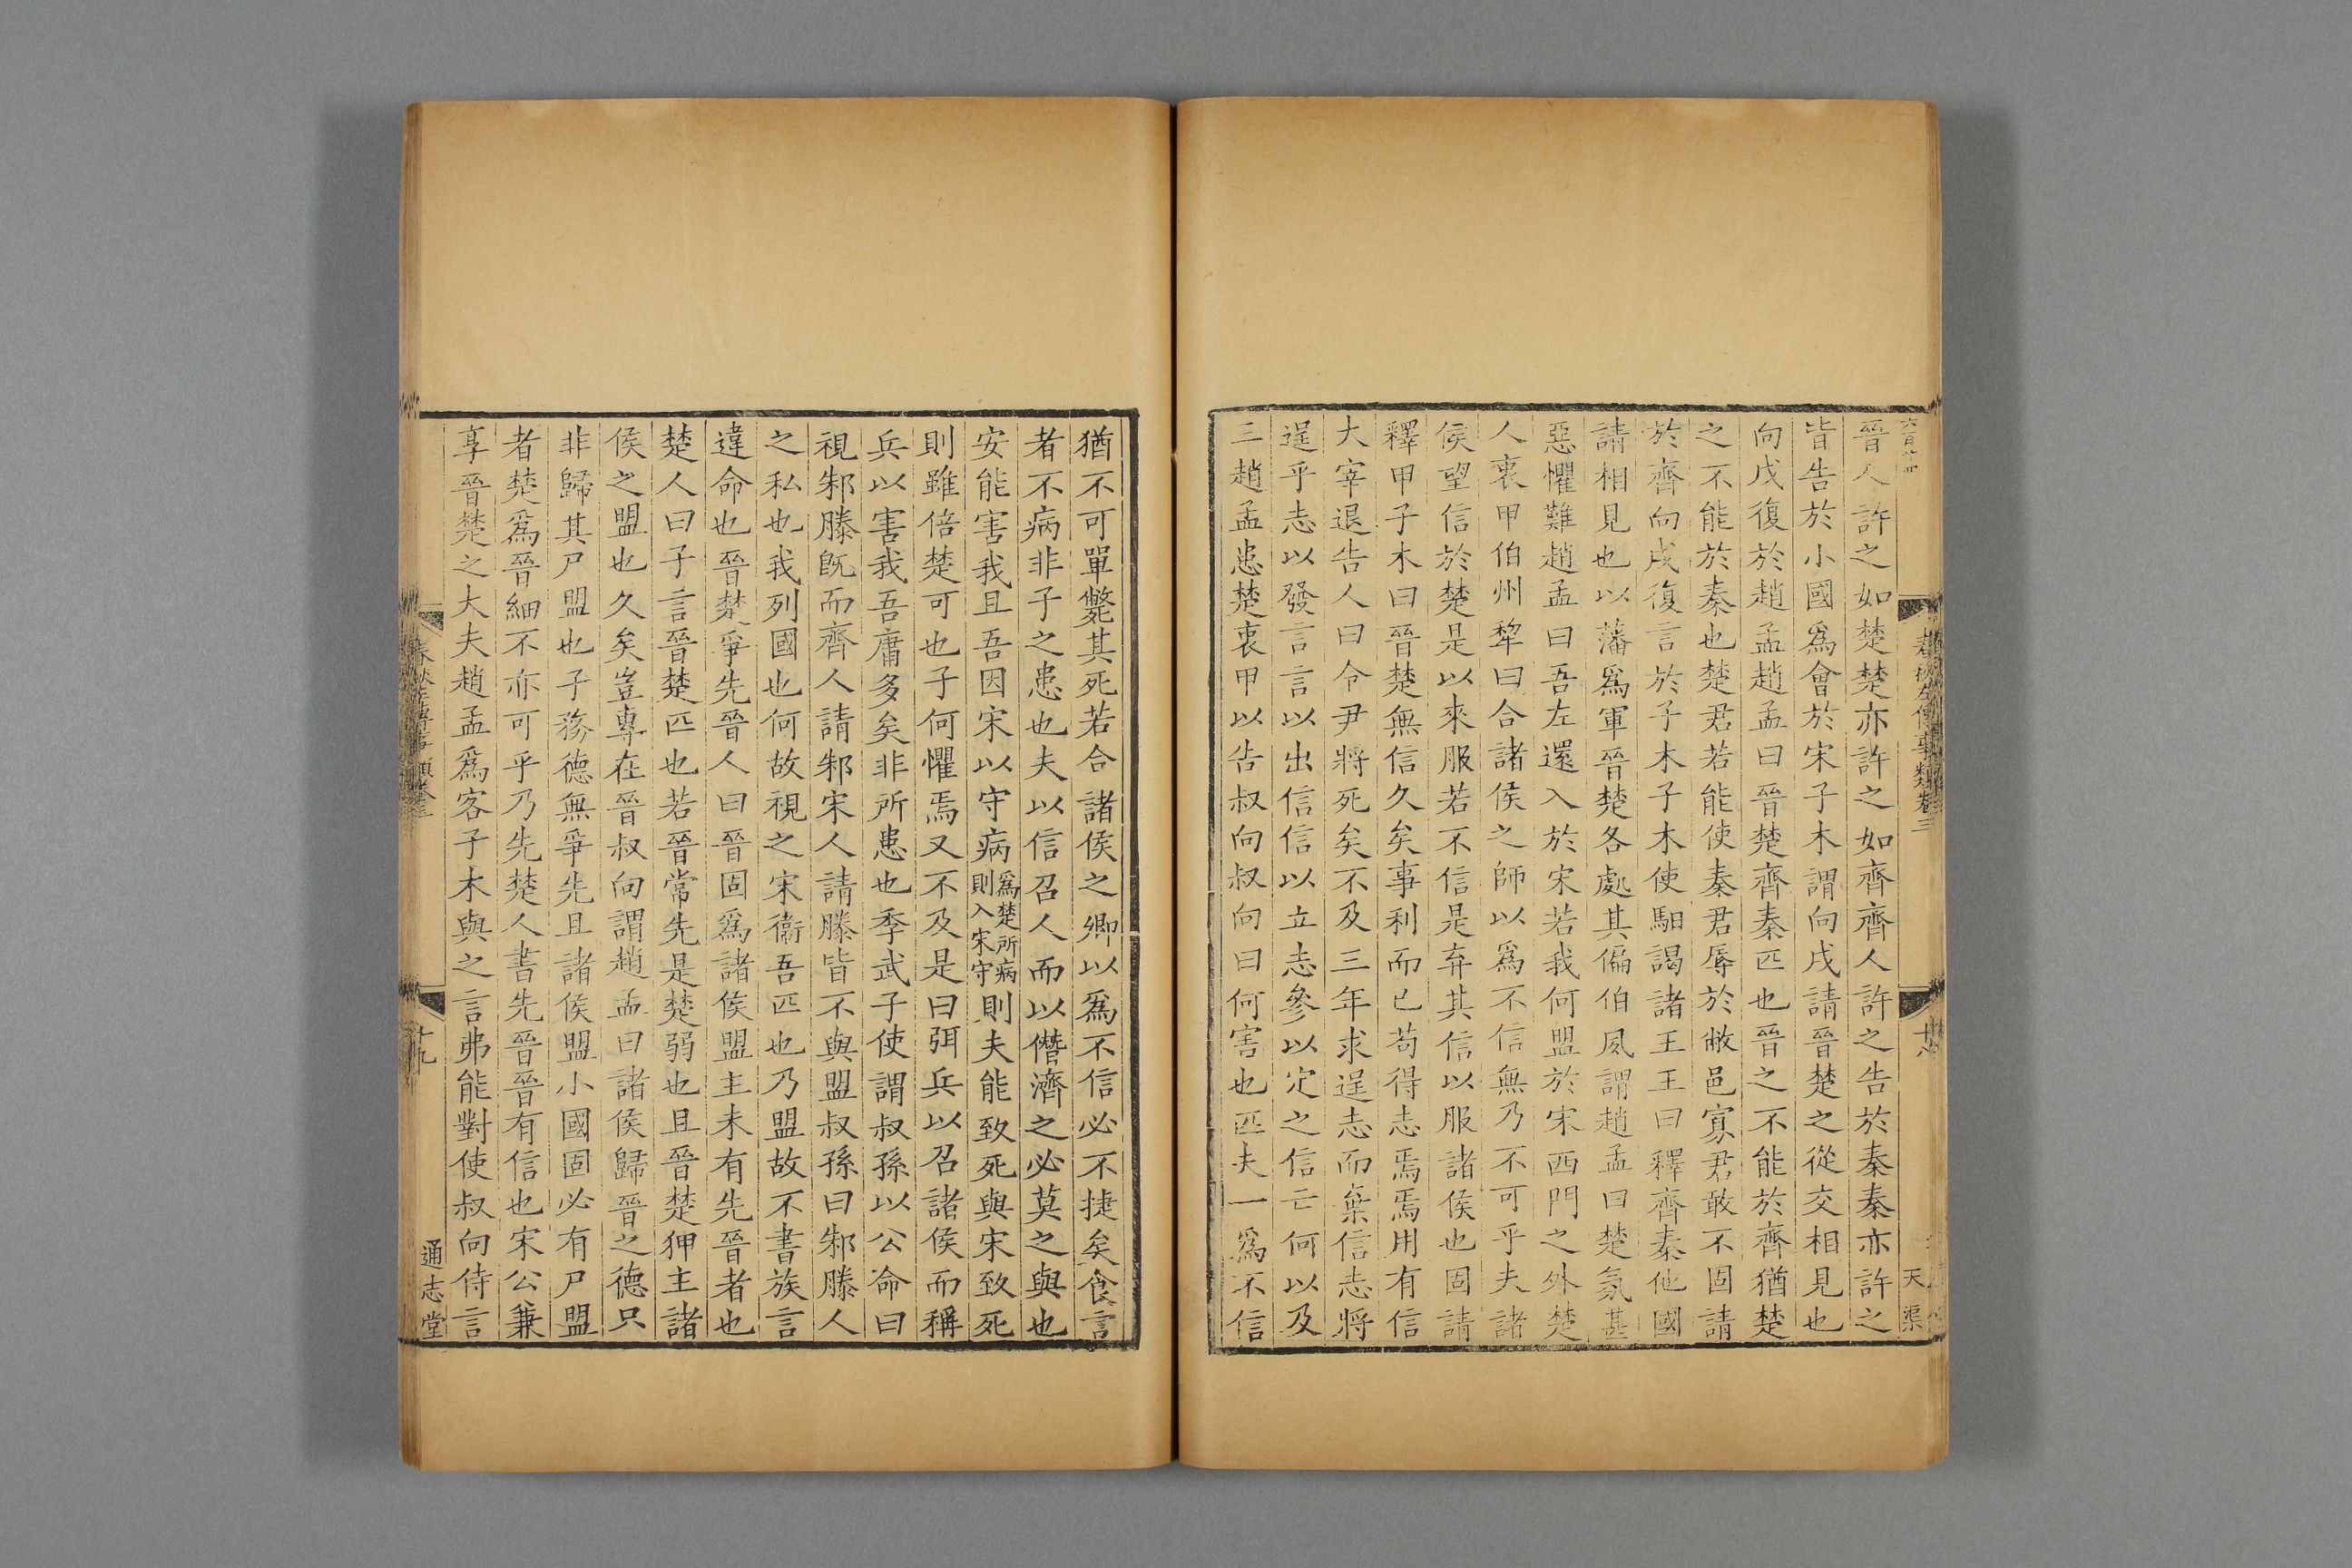 晉人許之如楚楚亦許之如齊齊人許之告於秦秦亦許之
皆告於小國爲會於宋子木謂向戌請晉楚之從交相見也
向戌復於趙孟趙孟曰晉楚齊秦匹也晉之不能於齊猶楚
之不能於秦也楚君若能使秦君辱於敝邑寡君敢不固請
於齊向戌復言於子木子木使馹謁諸王王曰釋齊秦他國
請相見也以藩爲軍晉楚各處其偏伯夙謂趙孟曰楚氛甚
惡懼難趙孟曰吾左還入於宋若我何盟於宋西門之外楚
人衷甲伯州犂曰合諸侯之師以爲不信無乃不可乎夫諸
侯望信於楚是以來服若不信是弃其信以服諸侯也固請
釋甲子木曰晉楚無信久矣事利而已苟得志焉焉用有信
大宰退告人曰令尹將死矣不及三年求逞志而棄信志將
逞乎志以發言言以出信信以立志參以定之信亡何以及
三趙孟患楚衷甲以告叔向叔向曰何害也匹夫一爲不信
春秋左傳事類卷三
十八
天渠
猶不可單斃其死若合諸侯之卿以爲不信必不捷矣食言
者不病非子之患也夫以信召人而以僭濟之必莫之與也
安能害我且吾因宋以守病爲楚所病則入宋守則夫能致死與宋致死
則雖倍楚可也子何懼焉又不及是曰弭兵以召諸侯而稱
兵以害我吾庸多矣非所患也季武子使謂叔孫以公命曰
視邾滕旣而齊人請邾宋人請滕皆不與盟叔孫曰邾滕人
之私也我列國也何故視之宋衞吾匹也乃盟故不書族言
違命也晉楚爭先晉人曰晉固爲諸侯盟主未有先晉者也
楚人曰子言晉楚匹也若晉常先是楚弱也且晉楚狎主諸
侯之盟也久矣豈專在晉叔向謂趙孟曰諸侯歸晉之德只
非歸其尸盟也子務德無爭先且諸侯盟小國固必有尸盟
者楚爲晉細不亦可乎乃先楚人書先晉晉有信也宋公兼
享晉楚之大夫趙孟爲客子木與之言弗能對使叔向侍言
十九
通志堂